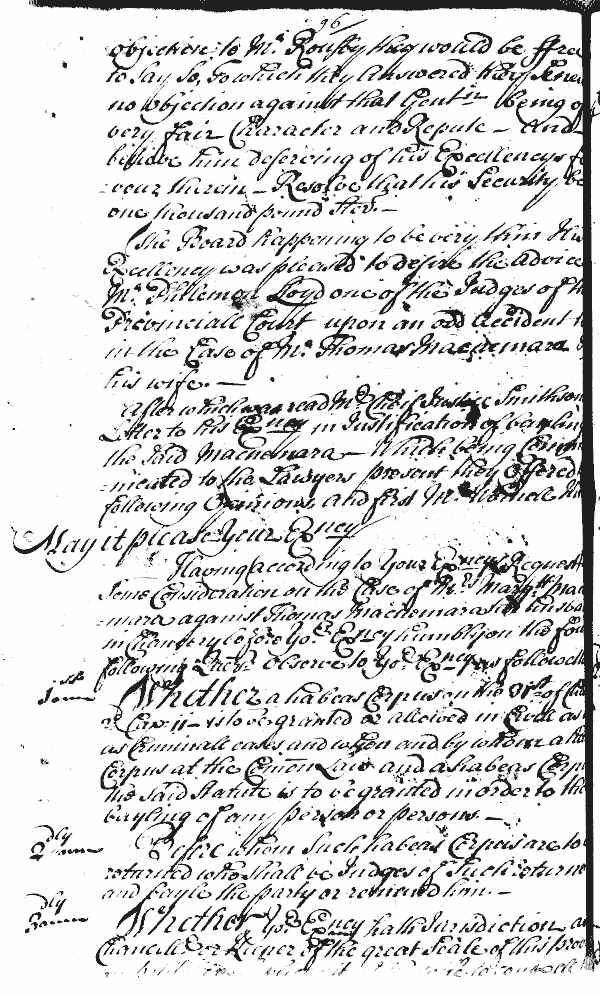 96
objection to Mr. Rousby they would be ffree
to say so, to which they answered they
no objection against that Gentln being of
very fair Character and Repute – And
believe him deserving of his Excellencys fa
vour therein – Resolve that his Security be
one thousand pound Ster. –
The Board happening to be very thin His
Excellency was pleased to desire the advice
Mr. Phillemon Loyd one of the Judges of th
Provinciall Court upon an odd Accident
in the Case of Mr. Thomas Macnemara
his wife. –
After which was read Mr. Cheif Justice Smithson
Letter to his Exncy in Justification of bayling
the said Macnemara – Which being Comm
nicated to the Lawyers present they offered
following Opinions and first Mr.
May it please Your Exncy
Having according to Your Exncys Request
some Consideration on the Case of Mrs. Margtt Mac
mara against Thomas Macnemara her husba
in Chancery before Yor. Exncy humbly on the fou
following observe to Yor. Exncy as followeth
Whether a habeas Corpus on the 31st of
2d Cap. 11 – is to be granted or allowed in Civill as
as Criminall cases and when and by whom a ha
Corpus at the Comon Law and a habeas Corpu
the said Statute is to be granted in order to the
bayling of any person or persons. –
2dly
Before whom such habeas Corpus are to
returned who shall be Judges of such returne
and bayle the party or remand him. –
3dly
Whether Yor. Exncy hath Jurisdiction as
Chancellr. or Keeper of the great Seale of this prov